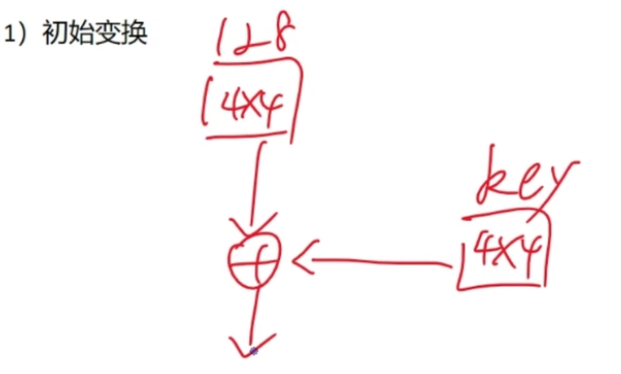 1）初始变换
128
4×4
key
4×4